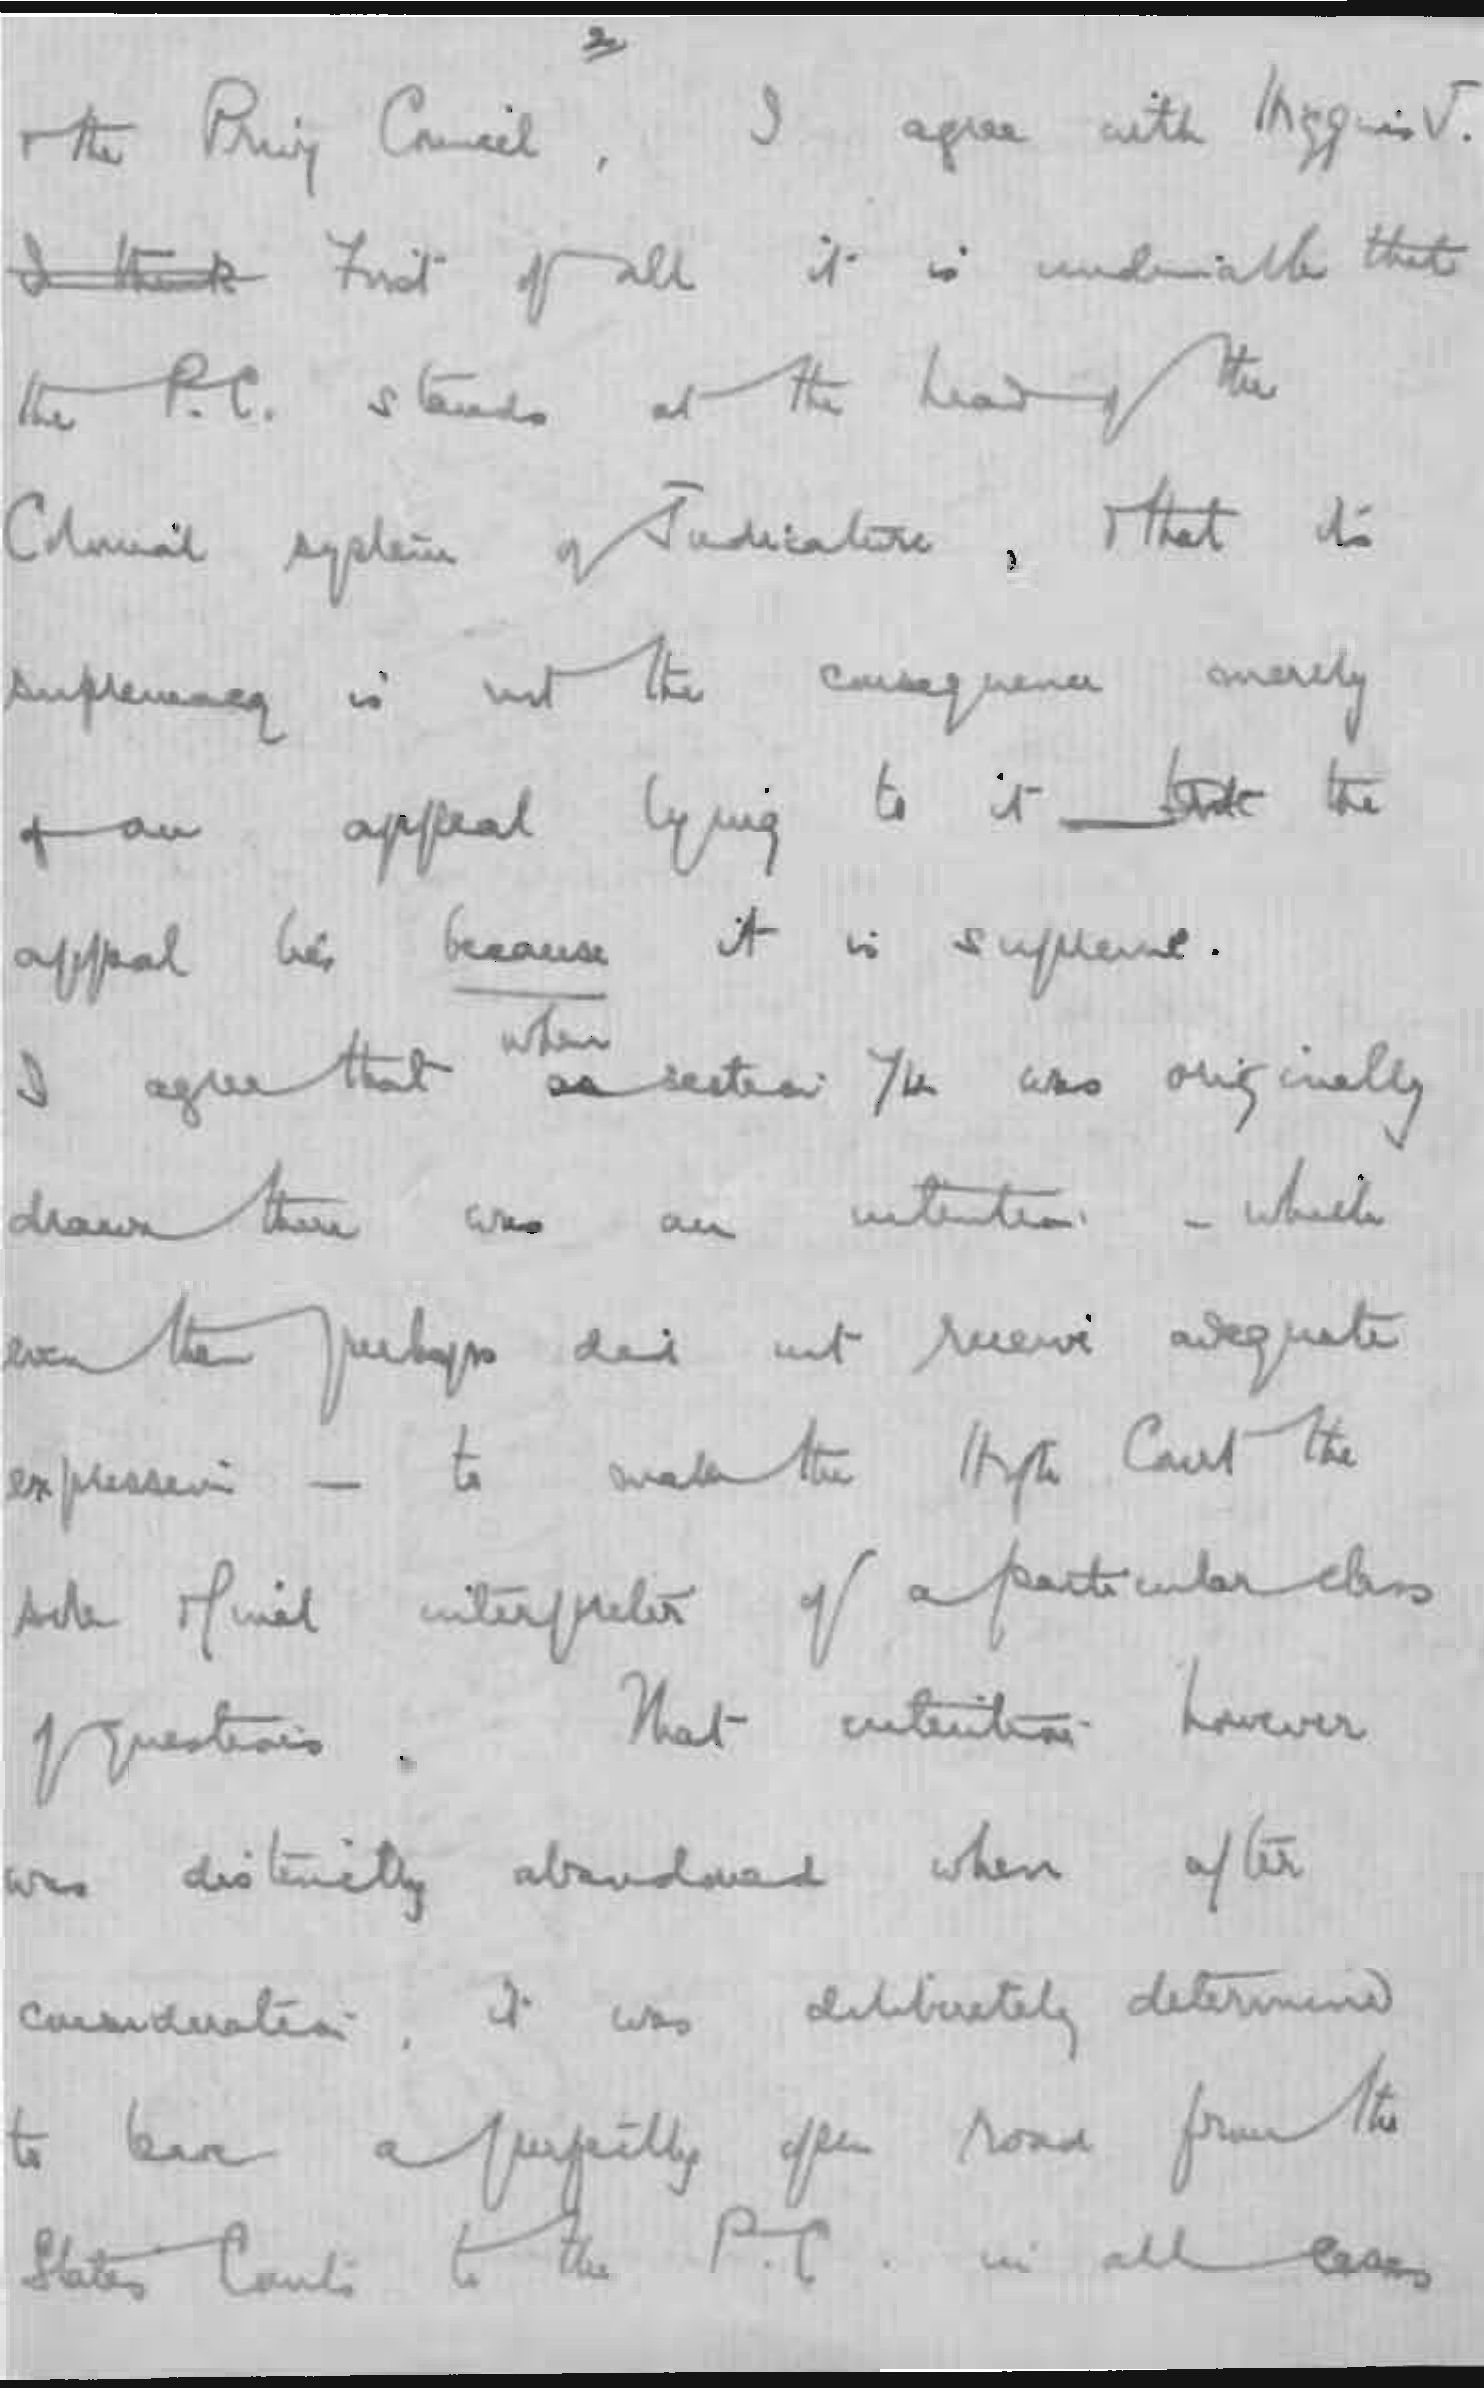 2
& the Privy Council, I agree with Higgins J.
I think First of all it is undeniable that
the P.C. stands at the head of the
Colonial system of Judicature, & that its
supremacy is not the consequence merely
of an appeal lying to it — but the
appeal lies because it is supreme.
when
I agree that as section 74 was originally
drawn there was an intention - which
even then perhaps did not receive adequate
expression — to make the High Court the
sole & final interpreter of a particular class
of questions. That intention however
was distinctly abandoned when after
consideration, it was deliberately determined
to leave a perfectly open road from the
States Courts to the P.C. in all cases